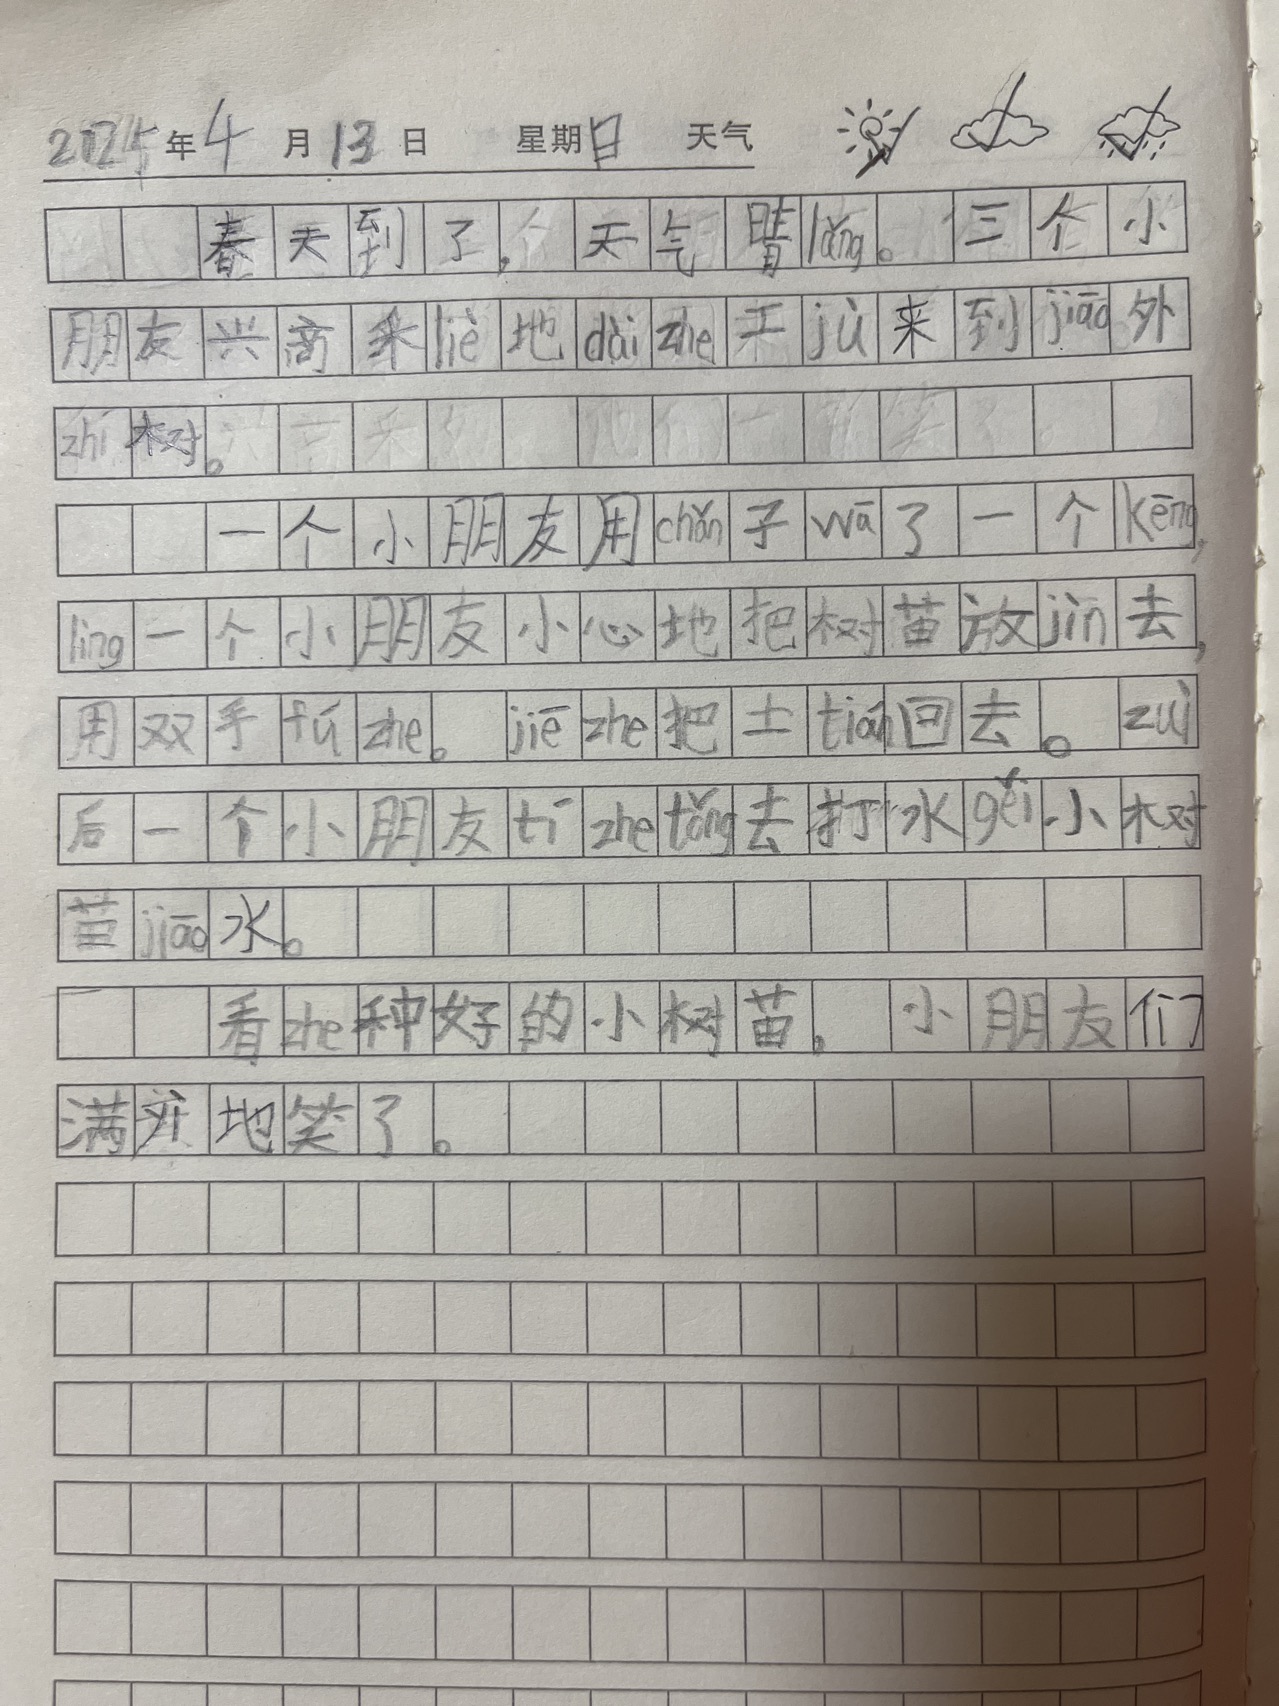 2025年4月13日 星期日 天气
春天到了,天气晴lǎng。三个小
朋友兴高采liè地dài zhe工jù来到jiāo外
zhí树。
一个小朋友用chǎn子wā了一个kēng,
lìng一个小朋友小心地把树苗放jìn去,
用双手fú zhe。jiē zhe把土tián回去。zuì
后一个小朋友tí zhe tǒng去打水gěi小树
苗jiāo水。
看zhe种好的小树苗,小朋友们
满开地笑了。